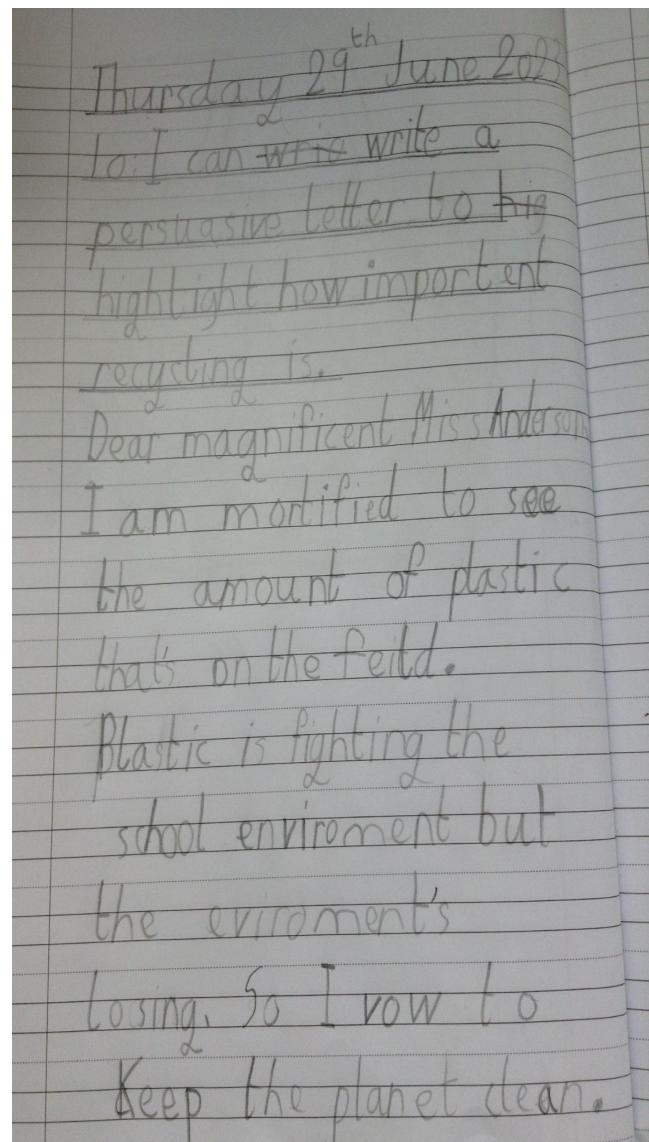 Thursday 29th June 2023
Lo: I can wrie write a
persuasive letter to hig
hightlight how importent
recycling is.
Dear magnificent Miss Anderson
I am mortified to see
the amount of plastic
that's on the feild.
Plastic is fighting the
school enviroment but
the eviroment's
losing. So I vow to
Keep the planet clean.